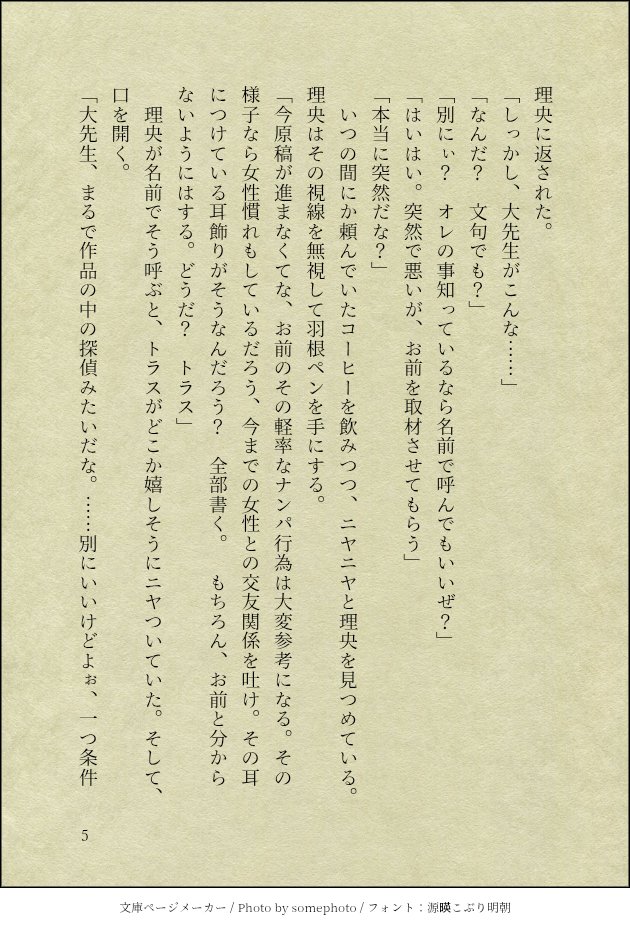 理央に返された。
「しっかし、大先生がこんな……」
「なんだ？　文句でも？」
「別にぃ？　オレの事知っているなら名前で呼んでもいいぜ？」
「はいはい。突然で悪いが、お前を取材させてもらう」
「本当に突然だな？」
　いつの間にか頼んでいたコーヒーを飲みつつ、ニヤニヤと理央を見つめている。
理央はその視線を無視して羽根ペンを手にする。
「今原稿が進まなくてな、お前のその軽率なナンパ行為は大変参考になる。その
様子なら女性慣れもしているだろう、今までの女性との交友関係を吐け。その耳
につけている耳飾りがそうなんだろう？　全部書く。　もちろん、お前と分から
ないようにはする。どうだ？　トラス」
　理央が名前でそう呼ぶと、トラスがどこか嬉しそうにニヤついていた。そして、
口を開く。
「大先生、まるで作品の中の探偵みたいだな。……別にいいけどよぉ、一つ条件
5
文庫ページメーカー / Photo by somephoto / フォント：源暎こぶり明朝